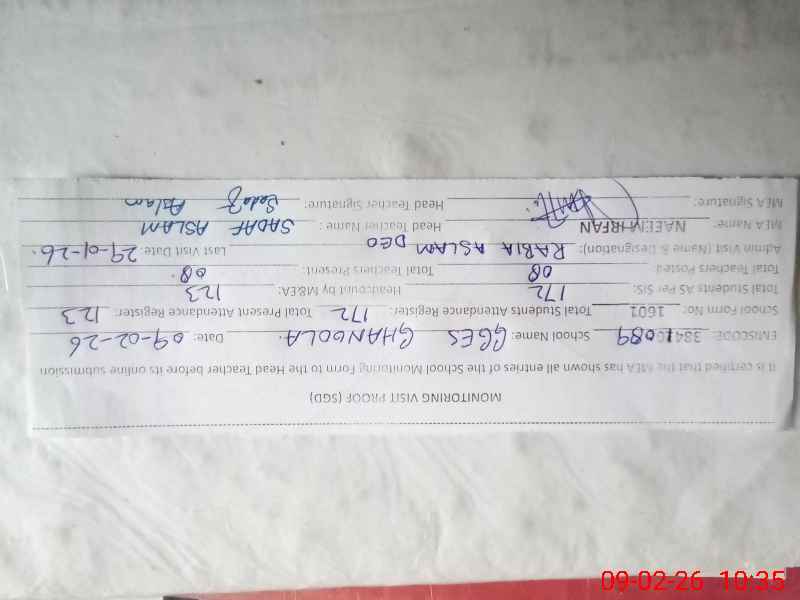 MONITORING VISIT PROOF (SGD)
It is certified that the MEA has shown all entries of the School Monitoring Form to the Head Teacher before its online submission
EMISCODE: 384 1089 School Name: GGES GHANGOLA. Date: 09-02-26
School Form No: 1601 Total Students Attendance Register: 172 Total Present Attendance Register: 123
Total Students As Per SIS: 172 Headcount by M&EA: 123
Total Teachers Posted 08 Total Teachers Present: 08.
Admin Visit (Name & Designation): RABIA ASLAM DEO Last Visit Date: 29-01-26.
MEA Name: NAEEM IRFAN Head Teacher Name: SADAF ASLAM
MEA Signature: Head Teacher Signature: Sadaf Aslam
09-02-26 10:35